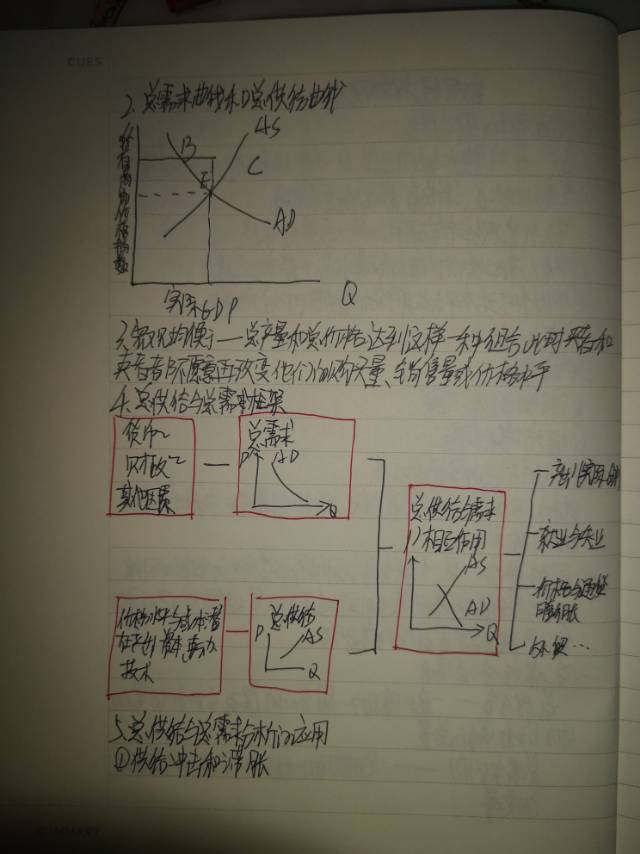 CUES
2. 总需求曲线和总供给曲线
AS
B
C
E
AD
所有商品的价格指数
实际GDP
Q
3. 宏观均衡:一总产量和总价格达到这样一种组合,此时买者和
卖者都不愿意再改变他们的购买量、销售量或价格水平
4. 总供给与总需求框架
货币~
财政~
其他因素
总需求
P
AD
Q
总供给与需求
相互作用
AS
AD
Q
产出(实际GDP)
就业与失业
价格与通货
膨胀
价格水平与成本潜
在产出 资本 劳动
技术
总供给
P
AS
Q
5. 总供给与总需求分析的应用
①供给冲击和滞胀
SUMMARY